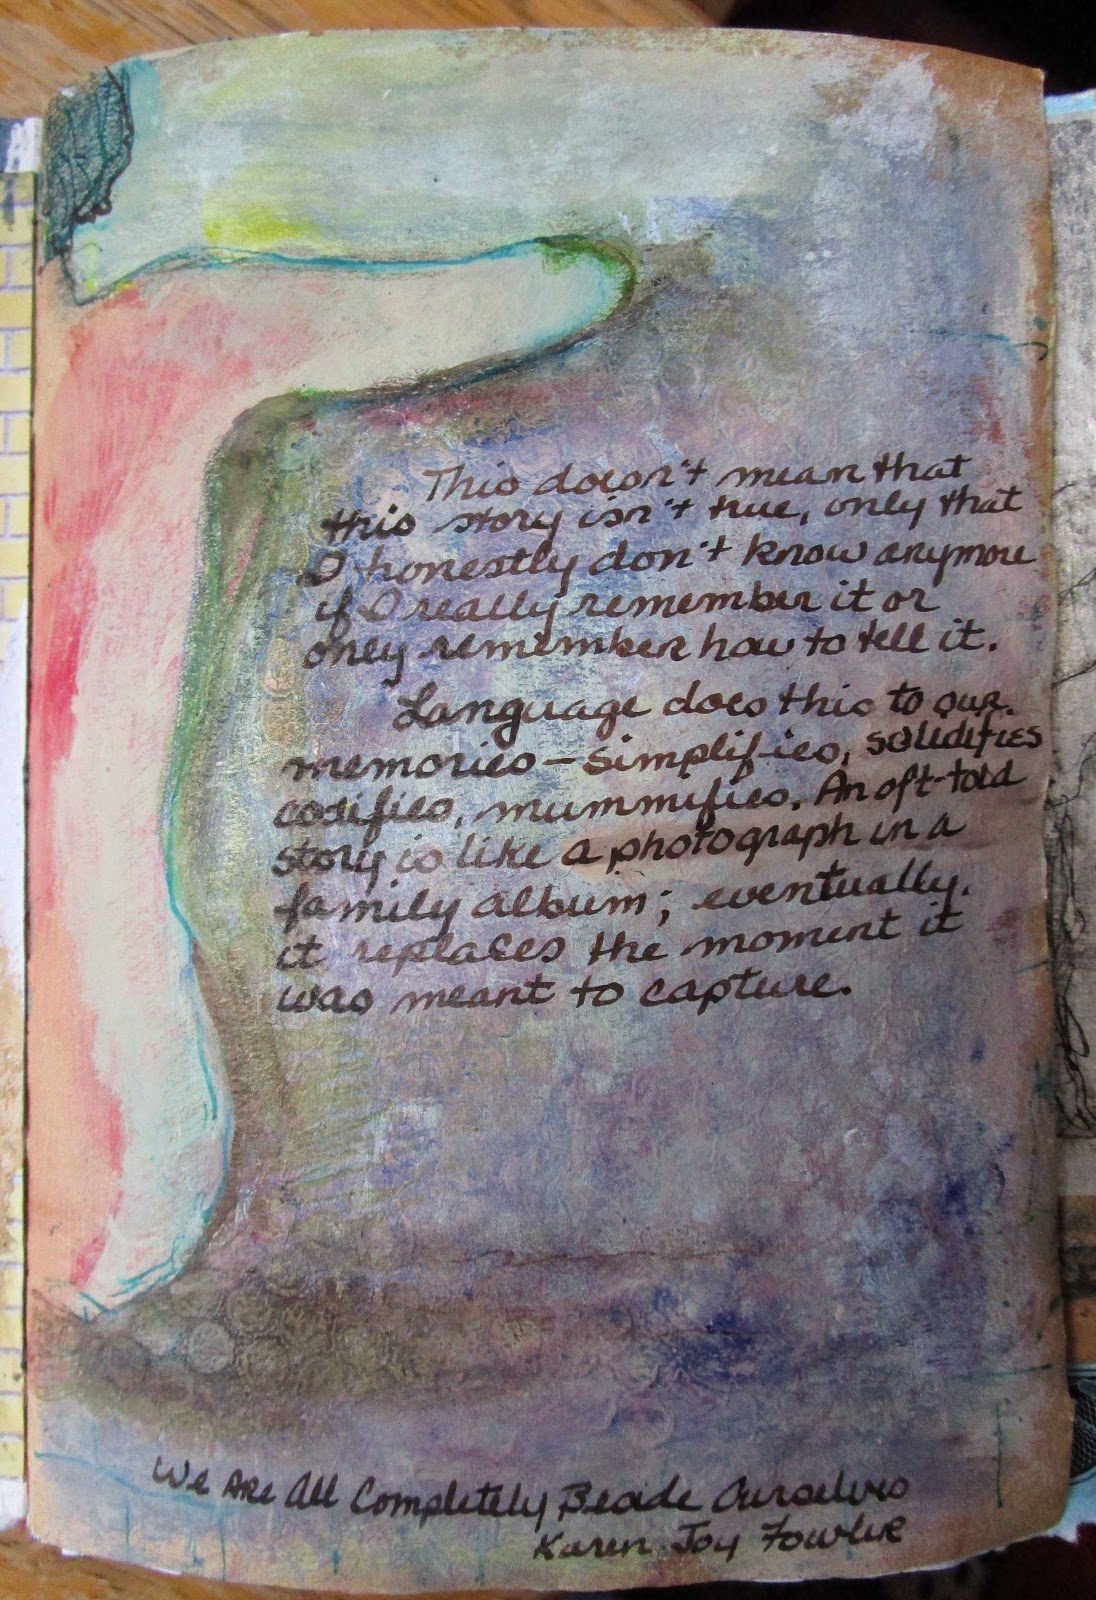 This doesn't mean that
this story isn't true, only that
I honestly don't know anymore
if I really remember it or
only remember how to tell it.
Language does this to our
memories - simplifies, solidifies
codifies, mummifies. An oft-told
story is like a photograph in a
family album; eventually.
it replaces the moment it
was meant to capture.
We Are All Completely Beside Ourselves
Karen Joy Fowler